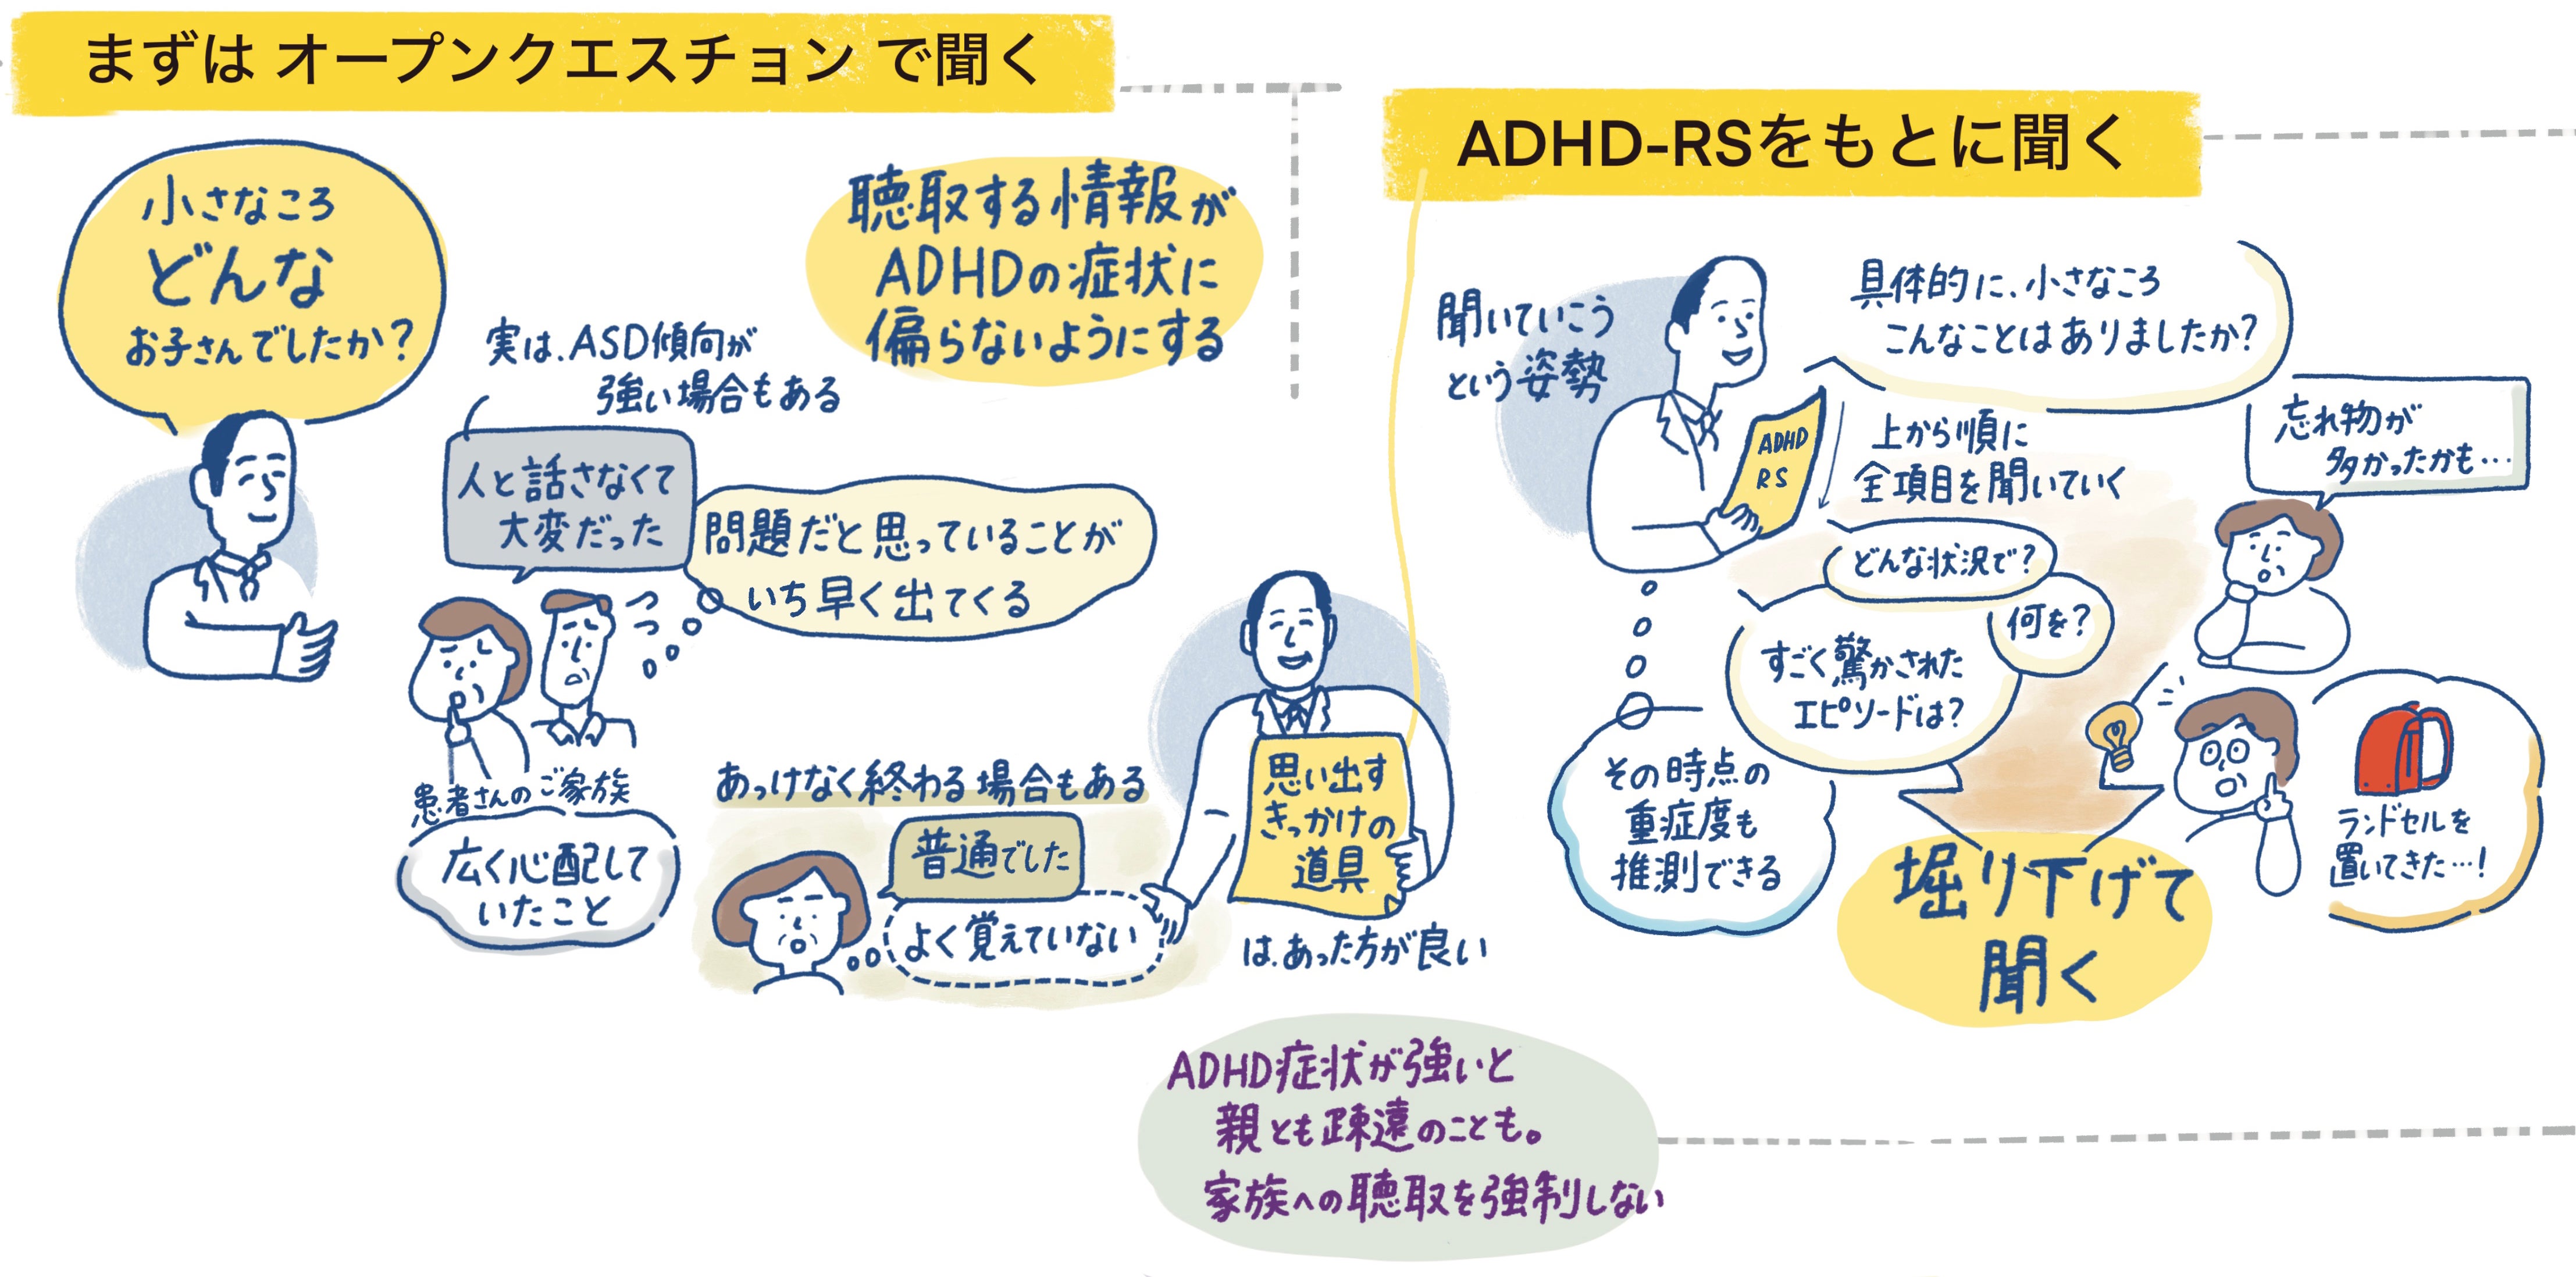 まずは オープンクエスチョン で聞く
小さなころ
どんな
お子さんでしたか?
聴取する情報が
ADHDの症状に
偏らないようにする
実は、ASD傾向が
強い場合もある
人と話さなくて
大変だった
問題だと思っていることが
いち早く出てくる
患者さんのご家族
広く心配して
いたこと
あっけなく終わる場合もある
普通でした
よく覚えていない
思い出す
きっかけの
道具
は、あった方が良い
ADHD-RSをもとに聞く
聞いていこう
という姿勢
具体的に、小さなころ
こんなことはありましたか?
ADHD
RS
上から順に
全項目を聞いていく
忘れ物が
多かったかも…
どんな状況で?
何を?
すごく驚かされた
エピソードは?
その時点の
重症度も
推測できる
ランドセルを
置いてきた…!
堀り下げて
聞く
ADHD症状が強いと
親とも疎遠のことも。
家族への聴取を強制しない